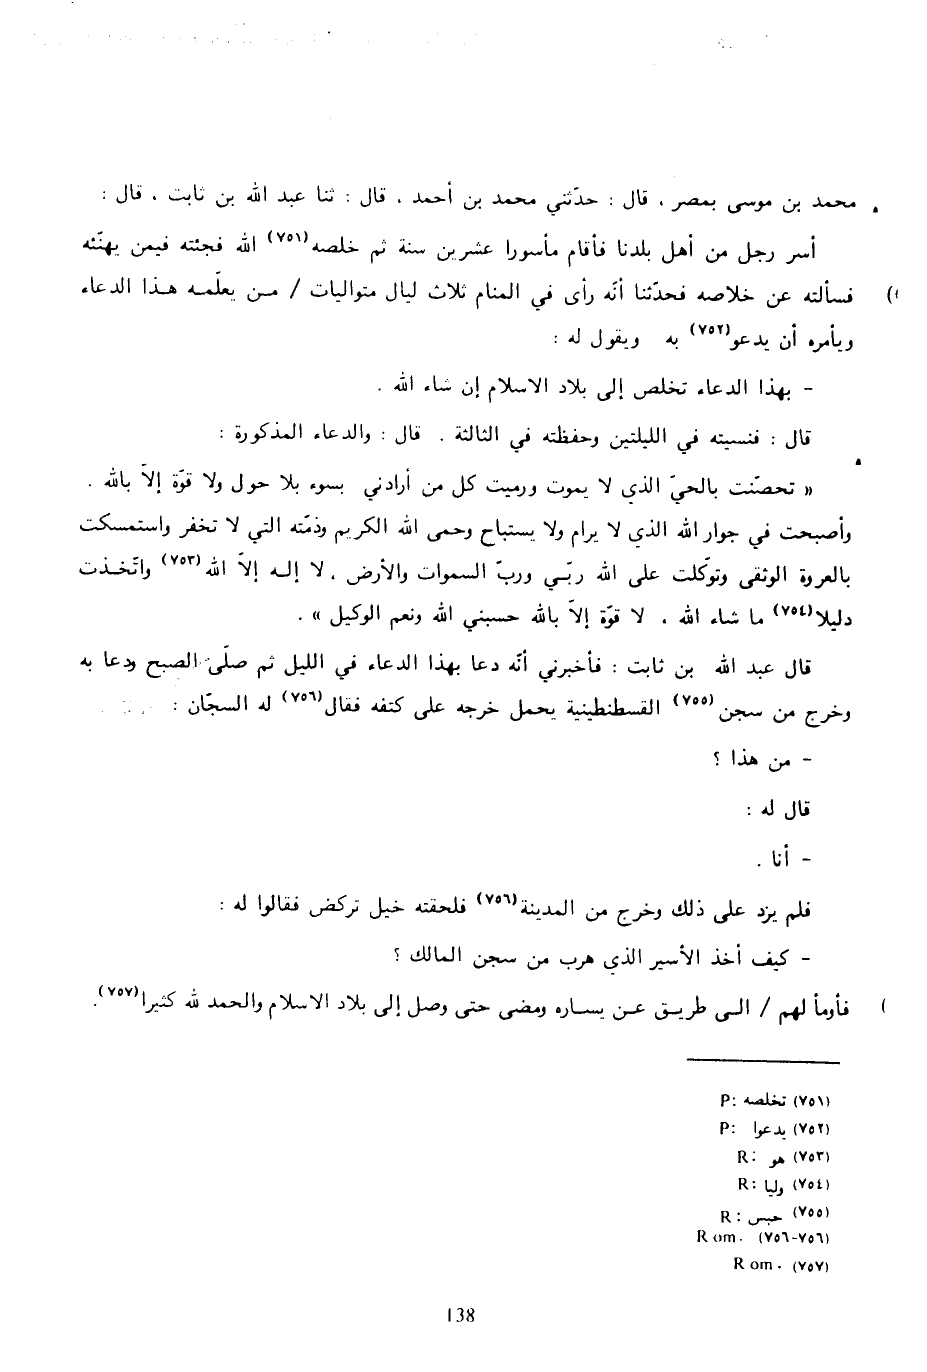 محمد بن موسى بمصر ، قال : حدّثني محمد بن أحمد ، قال : ثنا عبد الله بن ثابت ، قال :
أسر رجل من أهل بلدنا فأقام مأسورا عشرين سنة ثم خلصه(٧٥١) الله فجئته فيمن يهنّئه
فسألته عن خلاصه فحدّثنا أنّه رأى في المنام ثلاث ليال متواليات / مـن يعلّمـه هـذا الدعاء
ويأمره أن يدعو(٧٥٢) به ويقول له :
- بهذا الدعاء تخلص إلى بلاد الاسلام إن شاء الله .
قال : فنسيته في الليلتين وحفظته في الثالثة . قال : والدعاء المذكورة :
« تحصّنت بالحيّ الذي لا يموت ورميت كل من أرادني بسوء بلا حول ولا قوّة إلاّ بالله .
وأصبحت في جوار الله الذي لا يرام ولا يستباح وحمى الله الكريم وذمّته التي لا تخفر واستمسكت
بالعروة الوثقى وتوكّلت على الله ربّـي وربّ السموات والأرض ، لا إلـه إلاّ الله(٧٥٣) واتّخـذت
دليلا(٧٥٤) ما شاء الله ، لا قوّة إلاّ بالله حسبني الله ونعم الوكيل » .
قال عبد الله بن ثابت : فأخبرني أنّه دعا بهذا الدعاء في الليل ثم صلّى الصبح ودعا به
وخرج من سجن(٧٥٥) القسطنطينية يحمل خرجه على كتفه فقال(٧٥٦) له السجّان :
- من هذا ؟
قال له :
- أنا .
فلم يزد على ذلك وخرج من المدينة(٧٥٦) فلحقته خيل تركض فقالوا له :
- كيف أخذ الأسير الذي هرب من سجن المالك ؟
فأومأ لهم / الـى طريـق عـن يسـاره ومضى حتى وصل إلى بلاد الاسلام والحمد لله كثيرا(٧٥٧).
(٧٥١) تخلصه :P
(٧٥٢) يدعوا :P
(٧٥٣) هو :R
(٧٥٤) وليا :R
(٧٥٥) حبس :R
(٧٥٦-٧٥٦) R om.
(٧٥٧) R om.
138